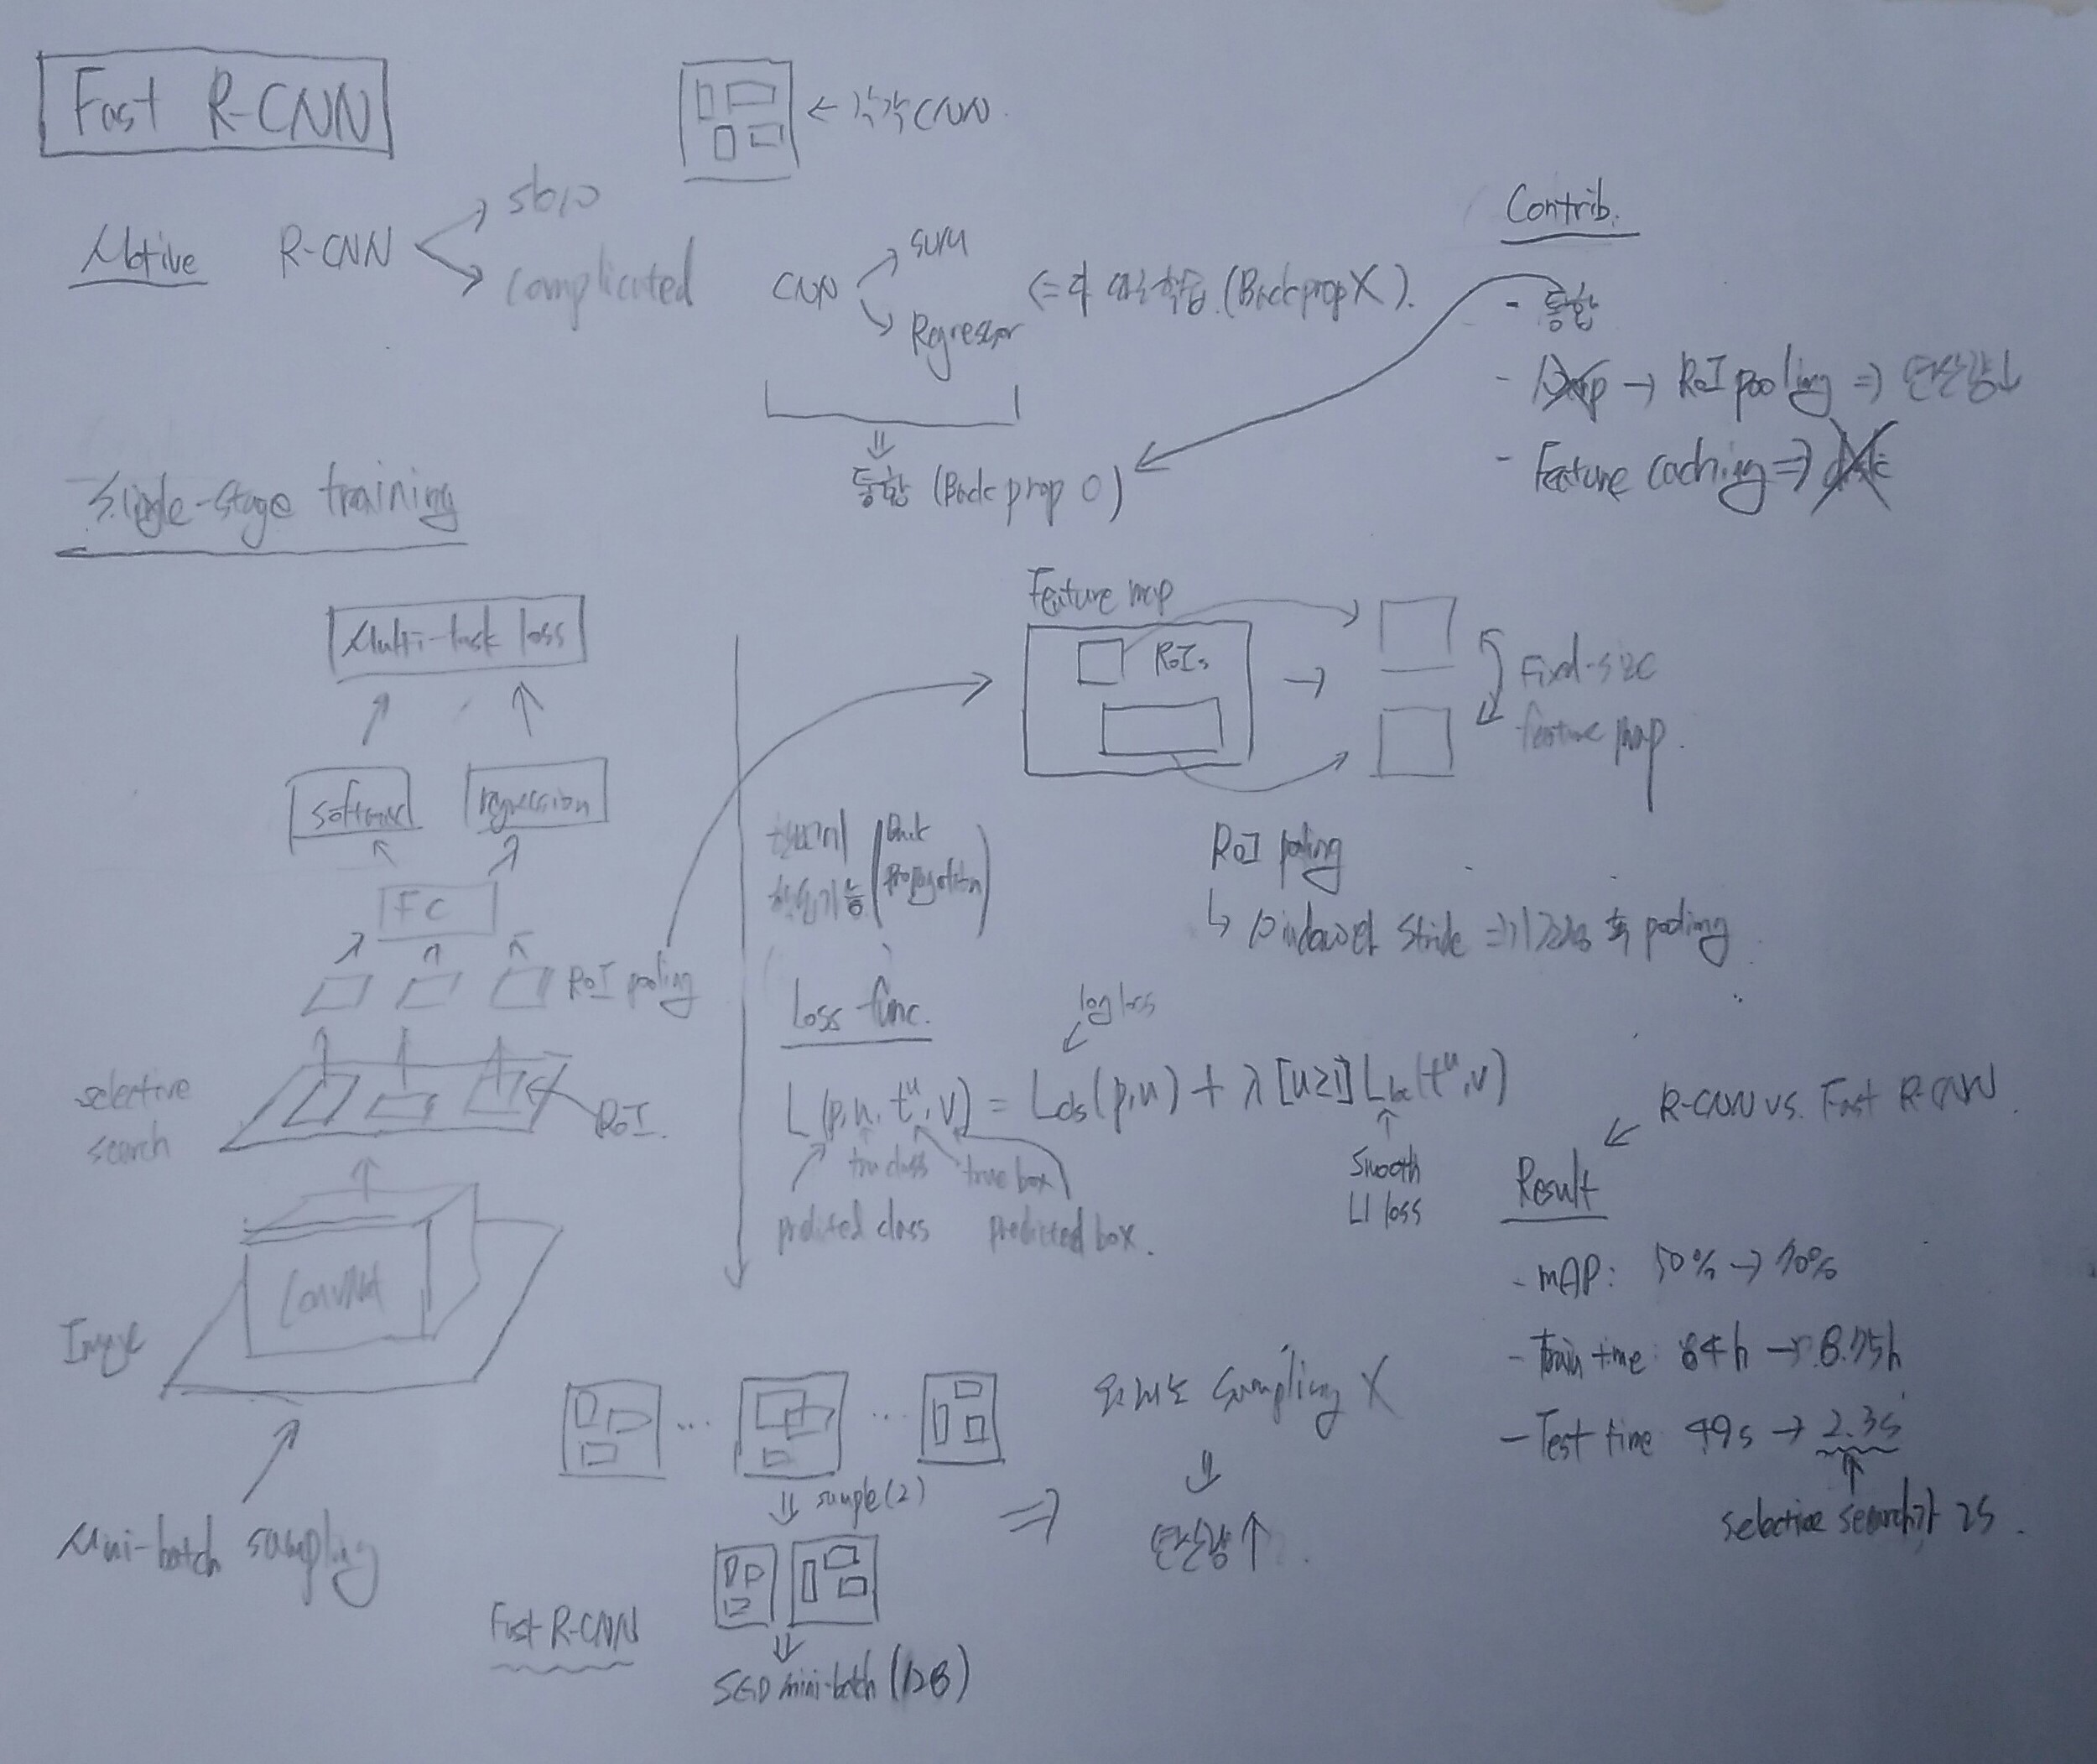 Fast R-CNN
← 각각 CNN
Motive R-CNN
slow
complicated
CNN
SVM
Regressor
⇐ 다 따로 학습 (Backprop X).
⇓
통합 (Backprop O)
Contrib.
- 통합
- Warp → RoI pooling ⇒ 연산량↓
- Feature caching ⇒ disk
Single-stage training
Multi-task loss
softmax
regression
FC
RoI pooling
selective
search
RoI
ConvNet
Image
Mini-batch sampling
Feature map
RoIs
Fixed-size
feature map.
RoI pooling
↳ window와 stride pooling
학습가능
(Back
Propagation)
Loss func.
log loss
L(p,u,t^u,v) = Lcls(p,u) + λ[u≥1]Lloc(t^u,v)
true class
true box
predicted class
predicted box.
Smooth
L1 loss
R-CNN vs. Fast R-CNN.
Result
- mAP: → 70%
- Train time: 84h → 8.75h
- Test time 49s → 2.3s
selective search가 2s.
...
...
⇓ sample(2)
⇒
원래는 Sampling X
⇓
연산량↑.
Fast R-CNN
⇓
SGD mini-batch (128)